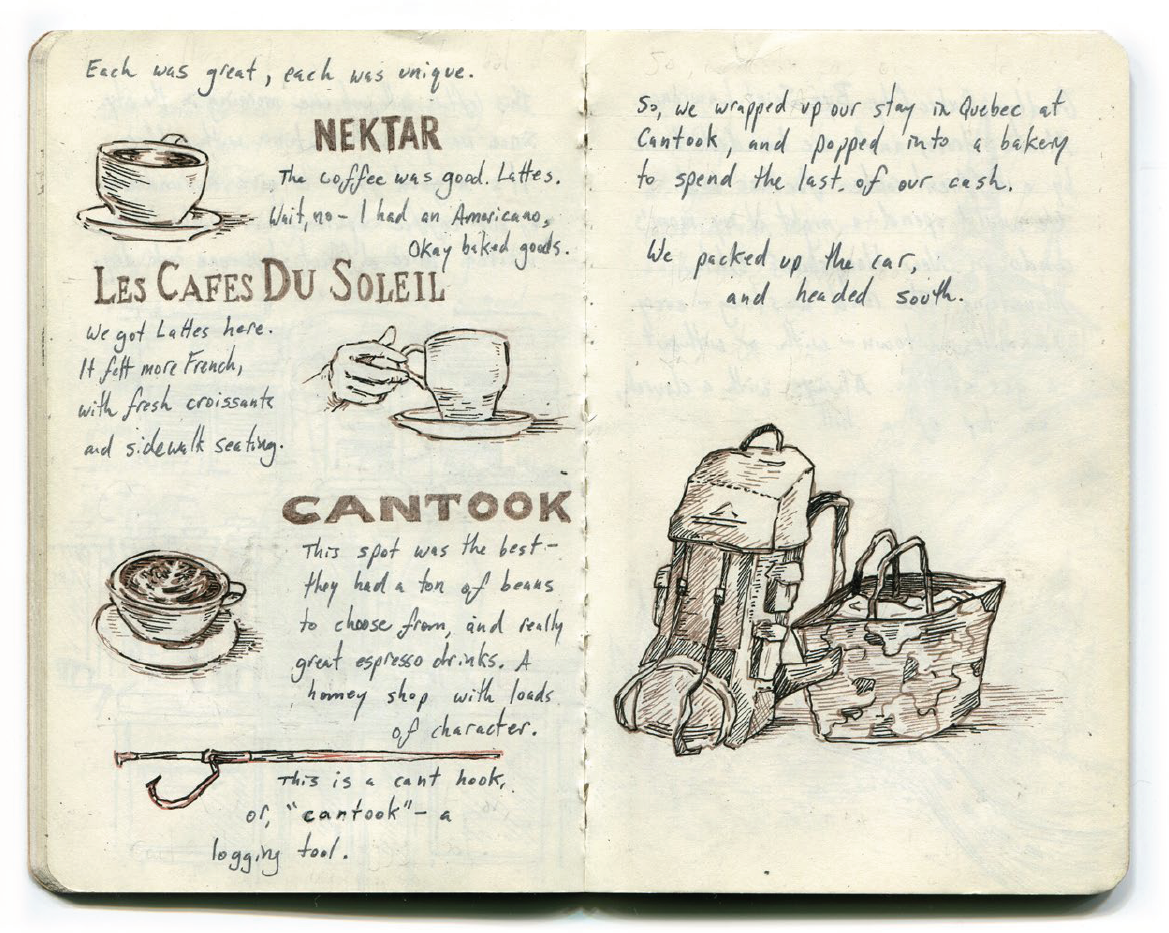 Each was great, each was unique.
NEKTAR
The coffee was good. Lattes.
Wait, no - I had an Americano.
Okay baked goods.
LES CAFES DU SOLEIL
We got Lattes here.
It felt more French,
with fresh croissants
and sidewalk seating.
CANTOOK
This spot was the best -
they had a ton of beans
to choose from, and really
great espresso drinks. A
homey shop with loads
of character.
This is a cant hook,
or, "cantook" - a
logging tool.
So, we wrapped up our stay in Quebec at
Cantook, and popped into a bakery
to spend the last of our cash.
We packed up the car,
and headed south.